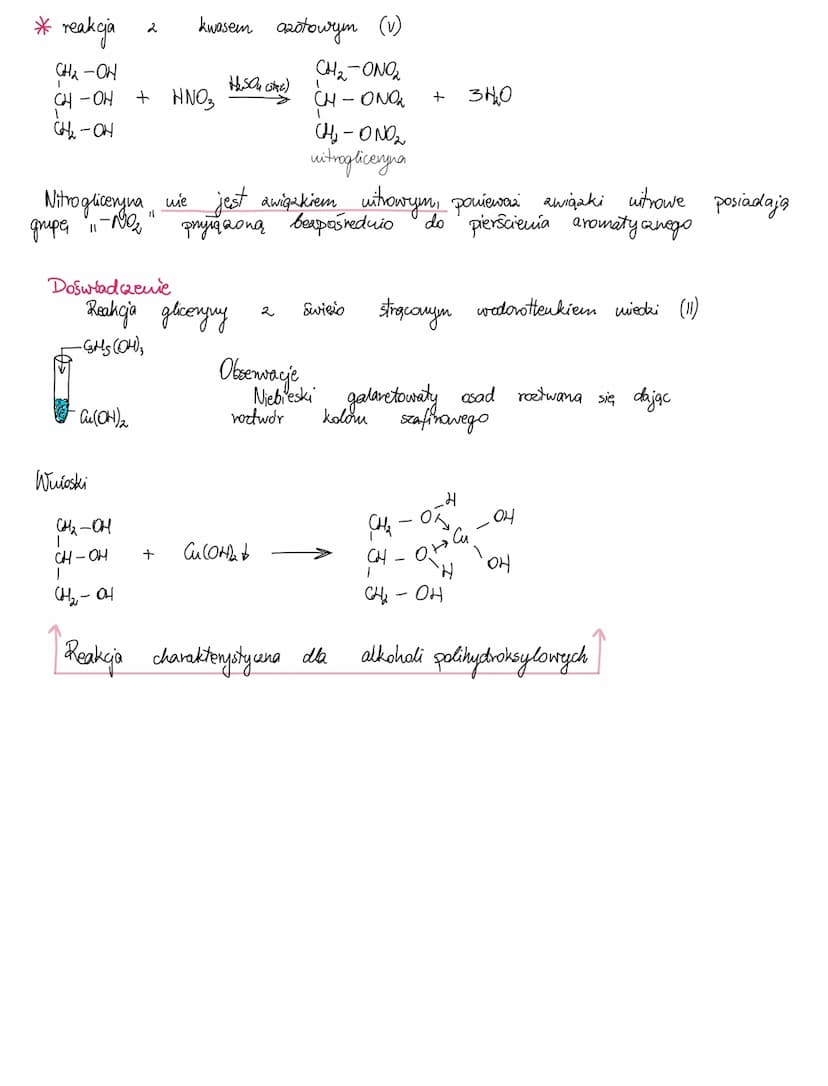 * reakcja z kwasem azotowym (V)
CH₂-OH
CH-OH + HNO₃ H₂SO₄ (stęż) → CH-ONO₂ + 3H₂O
CH₂-ONO₂
CH₂-OH
CH₂-ONO₂
nitrogliceryna
Nitrogliceryna nie jest związkiem nitrowym, ponieważ związki nitrowe posiadają
grupę "-NO₂" przyłączoną bezpośrednio do pierścienia aromatycznego
Doświadczenie
Reakcja gliceryny z świeżo strąconym wodorotlenkiem miedzi (II)
C₃H₅(OH)₃
Cu(OH)₂
Obserwacje
Niebieski galaretowaty osad roztwarza się dając
roztwór koloru szafirowego
Wnioski
CH₂-OH
CH-OH + Cu(OH)₂↓ →
CH₂-OH
CH₂-O H
Cu OH
CH-O H OH
CH₂-OH
Reakcja charakterystyczna dla alkoholi polihydroksylowych